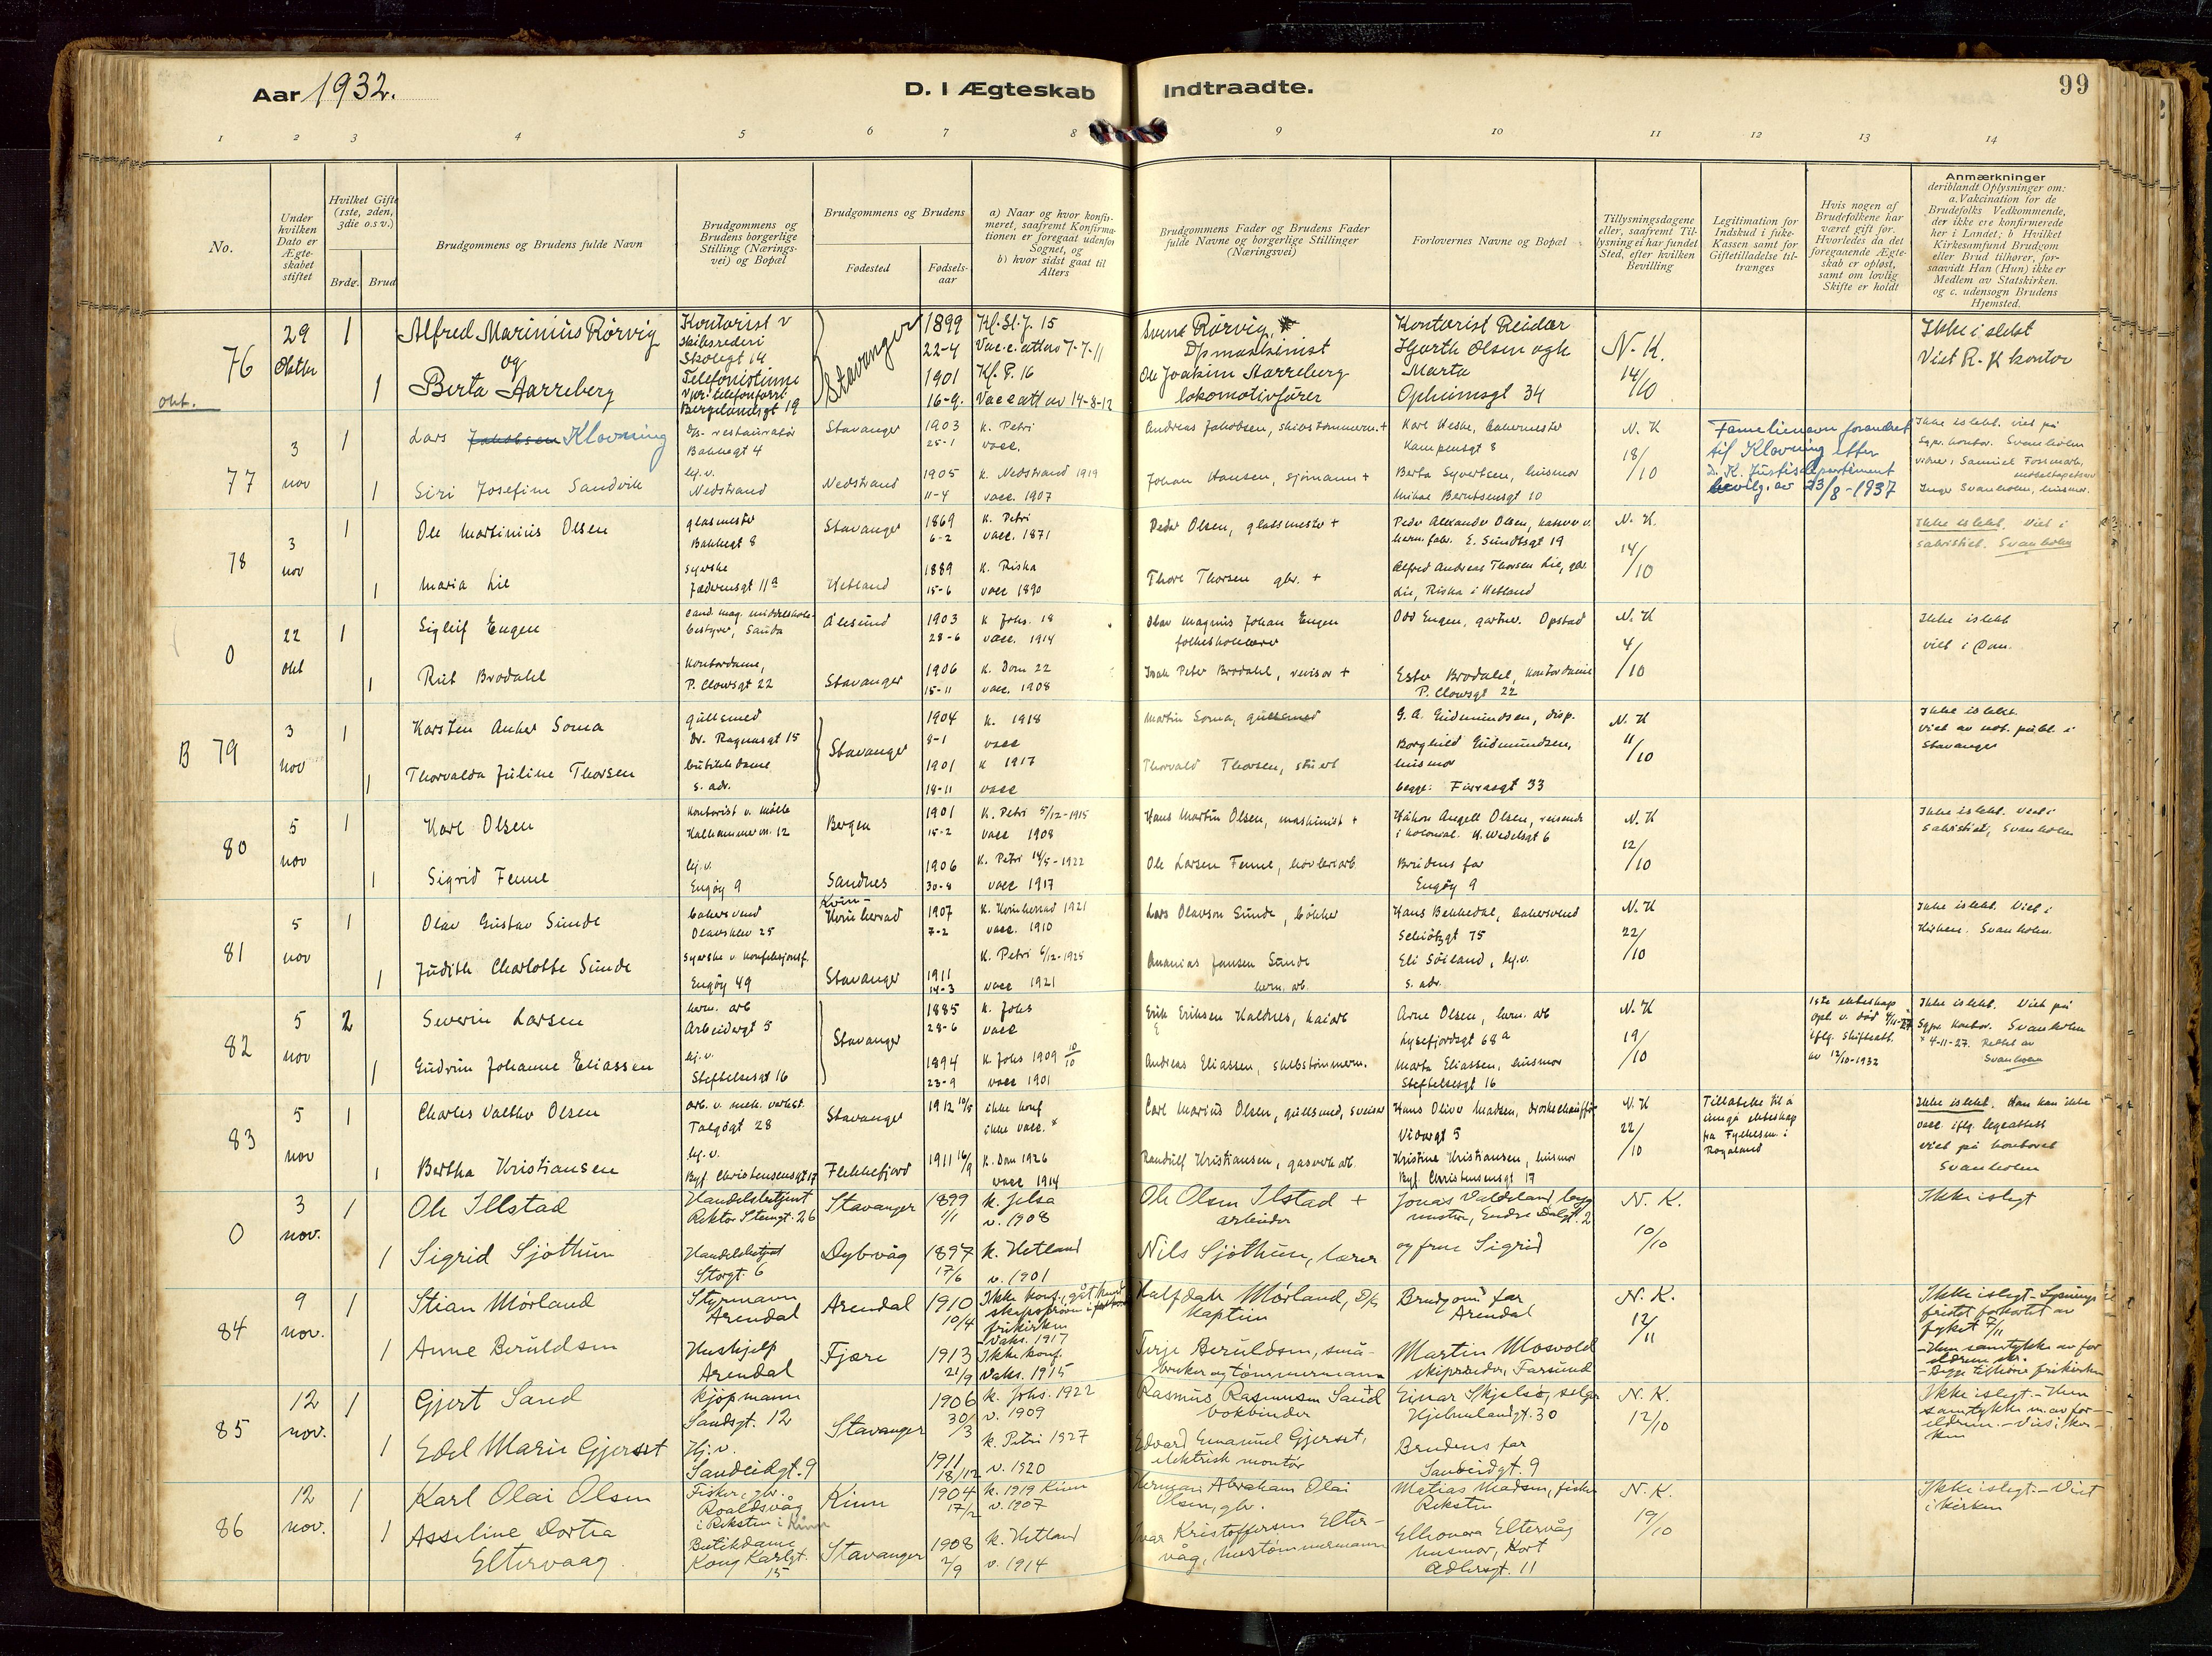 Aar 1932.
D. I Ægteskab Indtraadte.
99
1 2 3 4 5 6 7 8 9 10 11 12 13 14
No.
Under hvilken Dato er Ægteskabet stiftet
Hvilket Gifte (1ste, 2den, 3die o.s.v.)
Brdg. Brud
Brudgommens og Brudens fulde Navn
Brudgommens og Brudens borgerlige Stilling (Næringsvei) og Bopæl
Brudgommens og Brudens
Fødested
Fødselsaar
a) Naar og hvor konfirmeret, saafremt Konfirmationen er foregaat udenfor Sognet, og
b) hvor sidst gaat til Alters
Brudgommens Fader og Brudens Fader fulde Navne og borgerlige Stillinger (Næringsvei)
Forlovernes Navne og Bopæl
Tillysningsdagene eller, saafremt Tillysning ei har fundet Sted, efter hvilken Bevilling
Legitimation for Indskud i Enke-Kassen samt for Giftetilladelse tiltrænges
Hvis nogen af Brudefolkene har været gift før. Hvorledes da det foregaaende Ægteskab er opløst, samt om lovlig Skifte er holdt
Anmærkninger
deriblandt Oplysninger om: a. Vakcination for de Brudefolks Vedkommende, der ikke ere konfirmerede her i Landet; b Hvilket Kirkesamfund Brudgom eller Brud tilhører, forsaavidt Han (Hun) ikke er Medlem av Statskirken. og c. udensogn Brudens Hjemsted.
76
29 Oktbr
1
Alfred Marinius Rörvig
og
1
Berta Aarreberg
Kontorist v
Skibsrederi
Skolegt 14
Telefonistinne
Bergelandsgt 19
Stavanger
1899
22-4
1901
16-9.
Kf. St. J. 15
Kf. P. 16
Vacc att av 14-8-12
Rörvig,
Ole Joakim Aarreberg
lokomotivfører
Kontorist Reidar
Hjorth Olsen ogh
Marta
Opheimsgt 34
N. K.
14/10
Ikke i slekt
Viet R-K kontor
okt.
77
3 nov
1
Lars Jakobsen Klovning
1
Siri Josefine Sandvik
Bakkegt 4
hj. v.
Nedstrand
Stavanger
Nedstrand
1903
25-1
1905
11-4
K. Petri
vacc.
K. Nedstrand 1919
vacc. 1907
Andreas Jakobsen, skibstømmerm. +
Johan Hansen, sjømann +
Karl Heske, bakermester
Kampensgt 8
Berta Syvertsen, husmor
Mikal Berntsensgt 10
N. K
18/10
Familienavn forandret
til Klovning efter
D. K. Justisdepartement
bevilg. av 23/8-1937
Ikke i slekt. viet på
Sgpr. kontor. Svanholm
vidner: Samuel Fossmark,
Inger Svanholm, husmor.
78
3 nov
1
Ole Martinius Olsen
1
Maria Lie
glasmester
Bakkegt 8
syerske
Jæderensgt 11a
Stavanger
Hetland
1869
6-2
1889
15-6
K. Petri
vacc. 1871
K. Riska
vacc 1890
Peder Olsen, glassmester +
Thore Thorsen gbr. +
Peder Alexander Olsen, kasserer v.
herm. fabr. E. Sundtsgt 19
Alfred Andreas Thorsen Lie, gbr.
Lie, Riska i Hetland
N. K.
14/10
Ikke i slekt. Viet i
sakristiet. Svanholm
0
22 okt
1
Sigleif Engen
1
Rut Brodahl
cand. mag. middelskole-
bestyrer, Sauda
Kontordame,
P. Clowsgt 22
Ålesund
Stavanger
1903
28-6
1906
15-11
K Johs. 18
vacc. 1914
K. Dom 22
vacc. 1908
Olav Magnus Johan Engen
folkeskolelærer
Isak Peter Brodahl, revisor +
Odd Engen, gartner. Opstad
Ester Brodahl, kontordame
P. Clowsgt 22
N. K
4/10
Ikke i slekt
viet i Dom.
B 79
3 nov
1
Karsten Anker Soma
1
Thorvalda Juline Thorsen
gullsmed
Dr. Ragnasgt 15
butikkdame
s. adr.
Stavanger
1904
8-1
1901
18-11
K. 1918
vacc
K 1917
vacc
Martin Soma, gullsmed
Thorvald Thorsen, stuert
G. A. Gudmundsen, disp.
Borghild Gudmundsen,
husmor
begge: Furrasgt 33
N. K
11/10
Ikke i slekt.
Viet av not. publ. i
Stavanger
80
5 nov
1
Karl Olsen
1
Sigrid Femme
Kontorist v. Mølle
Kalhammerm. 12
hj. v.
Engøy 9
Bergen
Sandnes
1901
15-2
1906
30-8
K. Petri 5/12-1915
vacc 1908
K. Petri 14/5-1922
vacc 1917
Hans Martin Olsen, maskinist +
Ole Larsen Femme, hovleriarb
Håkon Angell Olsen, reisende
i kolonial. K. Wedelsgt 6
Brudens far
Engøy 9
N. K
12/10
Ikke i slekt. Viet i
sakristiet, Svanholm
81
5 nov
1
Olav Gustav Sunde
1
Judith Charlotte Sunde
bakersvend
Olavskleiv 25
Syerske v. konfeksjonsf.
Engøy 49
Kvin-
herrad
Stavanger
1907
7-2
1911
14-3
K. Kvinherrad 1921
vacc. 1910
K. Petri 6/12-1925
vacc 1921
Lars Olavson Sunde, bøkker
Ananias Jansen Sunde
herm. arb.
Hans Bekkedal, bakersvend
Schiøtzgt 75
Eli Söiland, hj. v.
s. adr.
N. K
22/10
Ikke i slekt. Viet i
Kirken. Svanholm.
82
5 nov
2
Severin Larsen
1
Gudrun Johanne Eliassen
herm. arb
Arbeidergt 5
hj. v.
Steffelsesgt 16
Stavanger
1885
28-6
1894
23-9
K. Johs
vacc
K Johs 1909 10/10
vacc 1901
Erik Eriksen Haldnes, kaiarb
Andreas Eliassen, skibstömmerm.
Arne Olsen, herm. arb
Lysefjordsgt 68a
Marta Eliassen, husmor
Steffelsesgt 16
N. K
19/10
1ste ekteskap
opl. v. død
iflg. skifteatt.
av 12/10-1932
Ikke i slekt. Viet på
Sgpr. kontor. Svanholm
* 4-11-27. Rettet av
Svanholm
83
5 nov
1
Charles Valther Olsen
1
Bertha Kristiansen
arb. v. mek. verksted.
Talgøgt 28
hj. v.
Byf. Christensensgt 17
Stavanger
Flekkefjord
1912 10/5
1911 16/9
ikke konf
ikke vacc. *
K. Dom 1926
vacc 1914
Carl Marius Olsen, gullsmed, sveiser
Randulf Kristiansen, gasverkarb.
Hans Oliver Madsen, droskechauffør
Vidarsgt 5
Kristine Kristiansen, husmor
Byf. Christensensgt 17
N. K
22/10
Tillatelse til å
inngå ekteskap
fra Fylkesm. i
Rogaland
Ikke i slekt. Han kan ikke
vacc. iflg. legeattest
viet på kontoret
Svanholm
0
3 nov.
1
Ole Ilstad
1
Sigrid Sjøthun
Handelsbetjent
Rektor Stengt. 26
Handelsbetjent
Storgt. 6
Stavanger
Dybvåg
1899
1/1
1897
17/6
k. Jelsa
v. 1908
k. Hetland
v. 1901
Ole Olsen Ilstad +
arbeider
Nils Sjøthun, lærer
Jonas Valdeland, byg
mester, Endre Dalsgt. 2
og frue Sigrid
N. K.
10/10
Ikke i slegt
84
9 nov.
1
Stian Mørland
1
Anne Beruldsen
Styrmann
Arendal
Hushjelp
Arendal
Arendal
Fjære
1910
10/4
1913
21/9
Ikke konf., gåt kund
skapsprøven i
frikirken
Vaks. 1917
Ikke konf.
Vaks. 1915
Halfdan Mørland, D/s
kaptein
Terje Beruldsen, små-
bruker og tømmermann
Brudgoms far
Arendal
Martin Mosvold
skipsreder, Farsund
N. K.
12/11
Ikke i slegt - Lysnings
fristet forkortet av
fylket 7/11
- Hun samtykke av for
eldrene
- Begge tilhører frikirken
85
12 nov.
1
Gjert Sand
1
Edel Marie Gjerset
kjøpmann
Sandsgt. 12
Hj. v.
Sandeidgt. 9
Stavanger
1906
30/3
1911
18/12
k. Johs. 1922
v. 1909
k. Petri 1927
v. 1920
Rasmus Rasmussen Sand
bokbinder
Edvard Emanuel Gjerset,
elektrisk montør
Einar Skjelsø, selger
Hjelmelandgt. 30
Brudens far
Sandeidgt. 9
N. K.
12/10
Ikke i slegt. - Hun
samtykke m. av for-
eldrene. - Viet i kir-
ken
86
12 nov.
1
Karl Olai Olsen
1
Asseline Dortea
Eltervaag
Fisker, gbr.
Roaldsvåg
i Reksten i Kinn
Butikdame
Kong Karlsgt.
15
Kinn
Stavanger
1904
17/2
1908
2/9
k. 1919 Kinn
v. 1907
k. Hetland
v. 1914
Herman Abraham Olai
Olsen, gbr.
Ivar Kristoffersen Elter-
våg, hustømmermann
Matias Madsen, fisker
Reksten
Elleonora Eltervåg
husmor, Kort
Adlersgt. 11
N. K.
19/10
Ikke i slegt. - Viet
i kirken